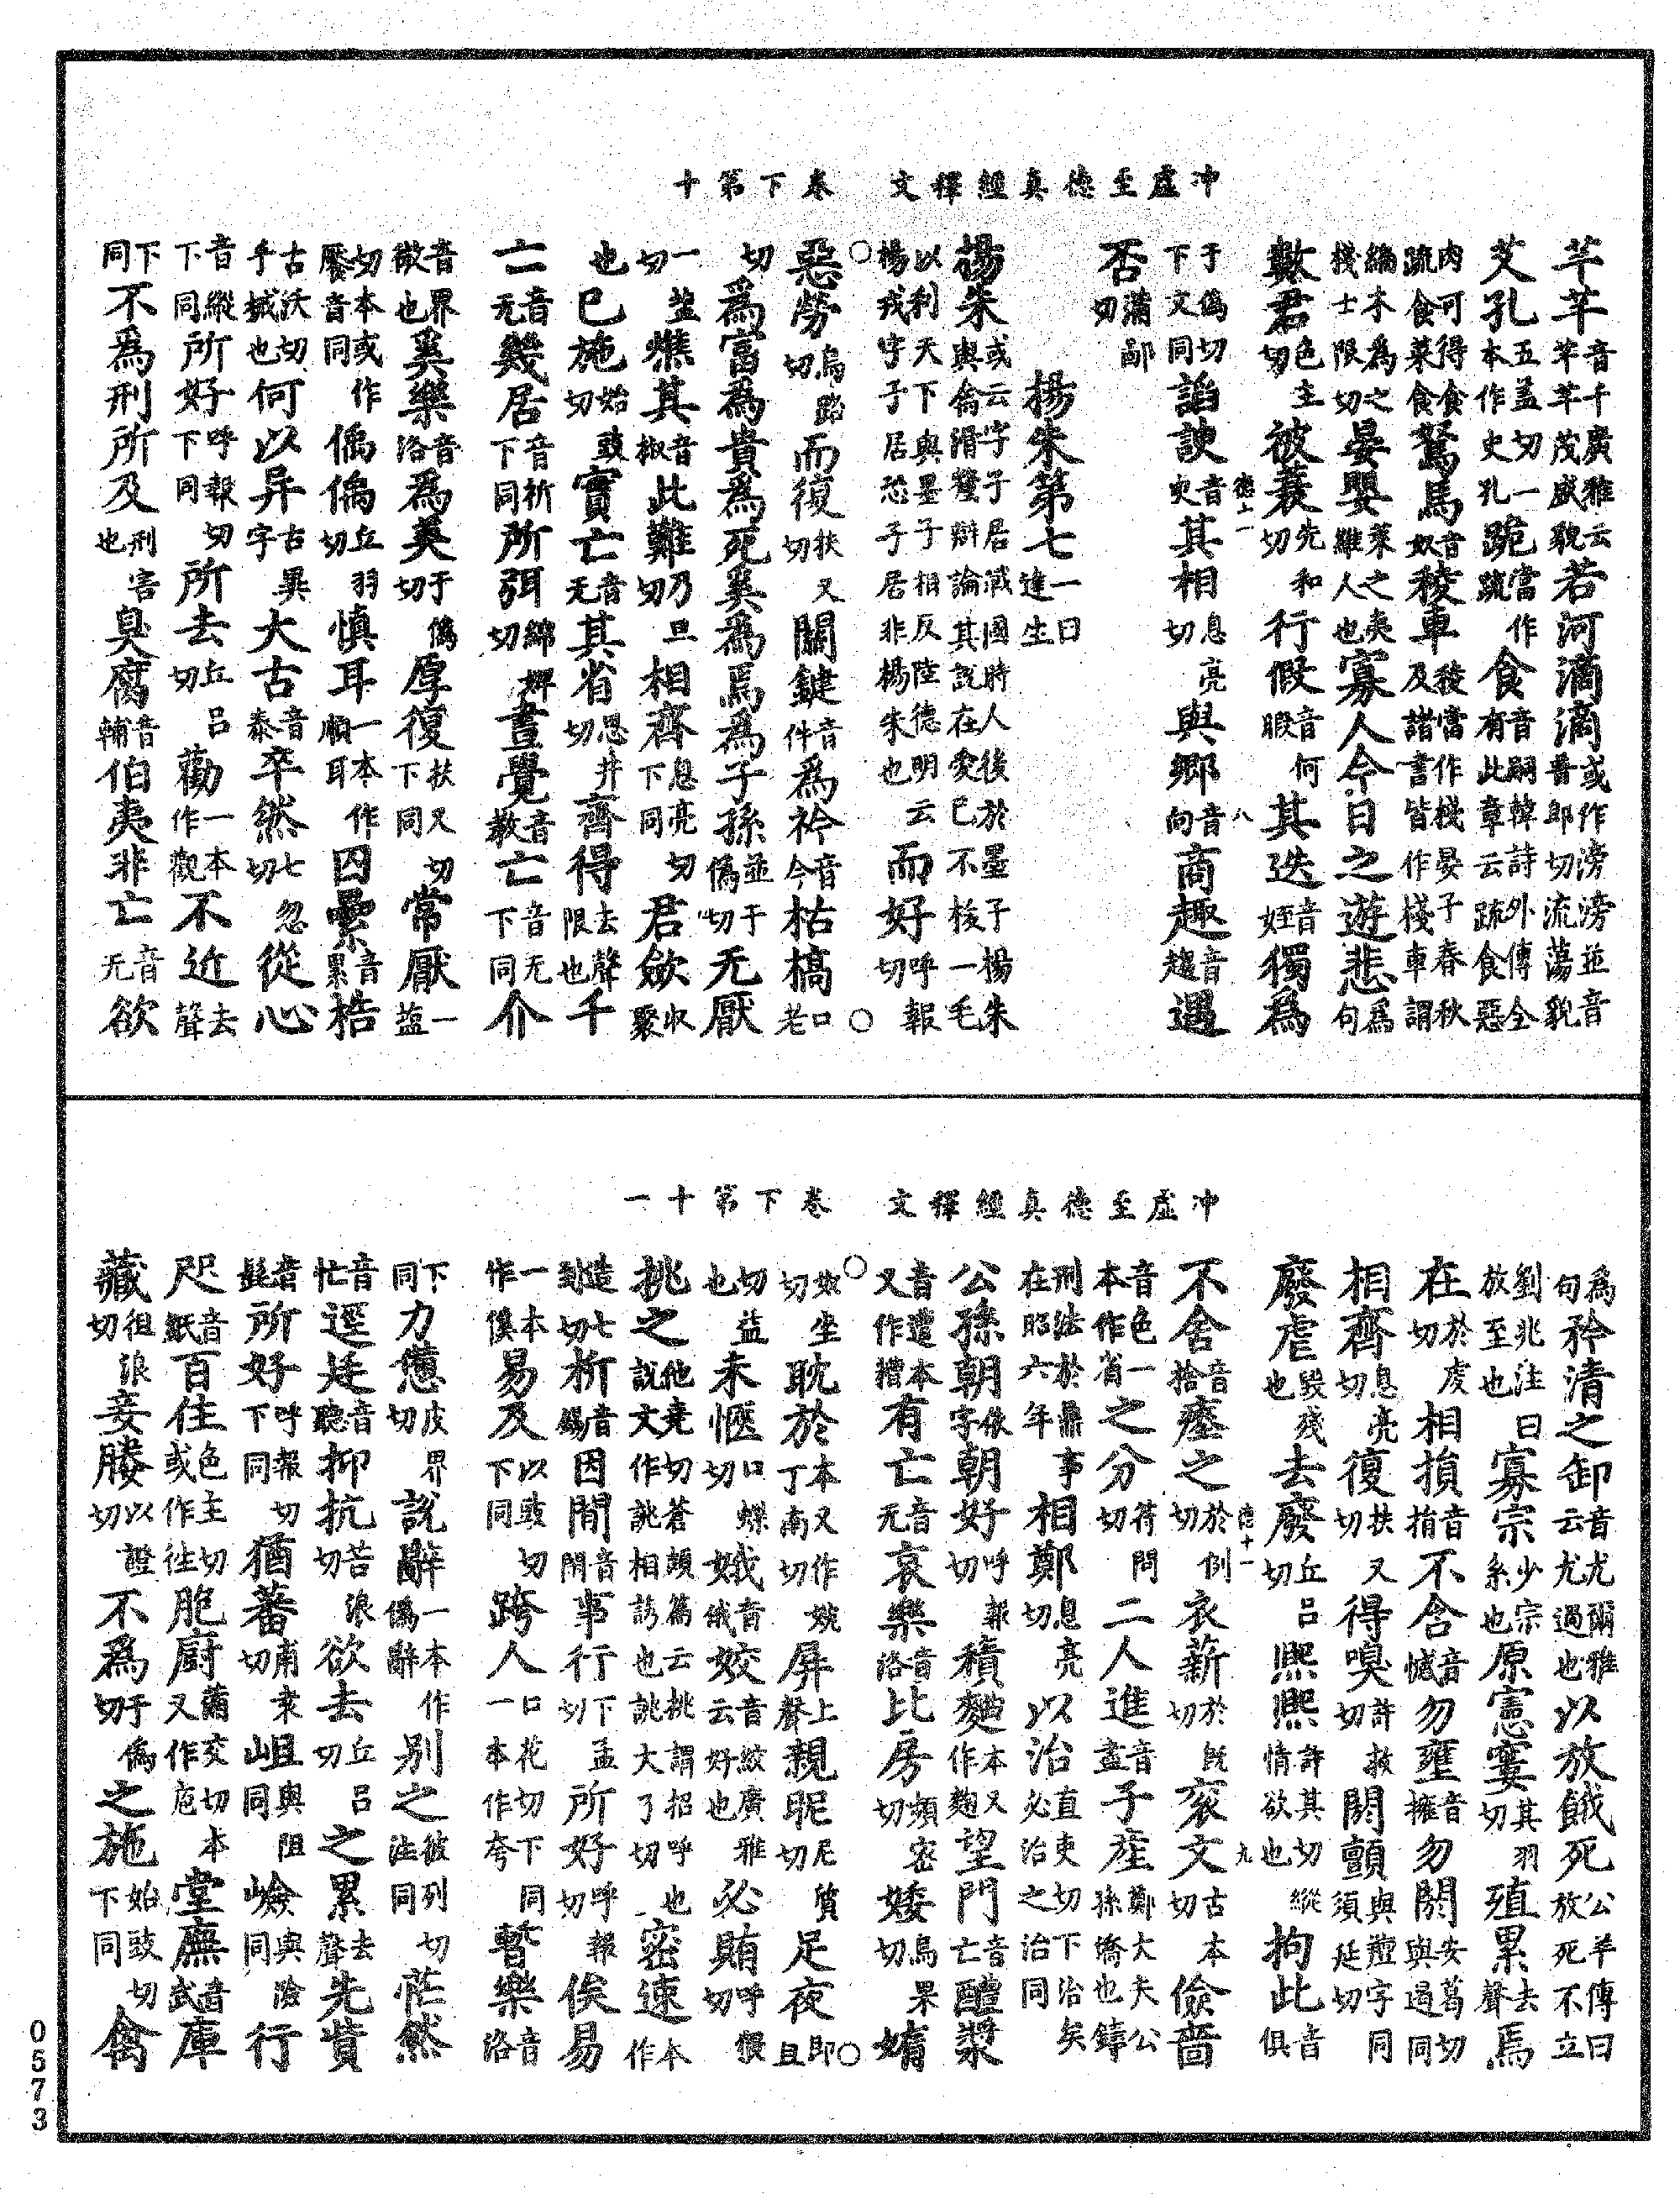 冲虛至德真經釋文　卷下第十
芊芊音千廣雅云芊芊茂盛貌若河滴滴或作滂滂並音普郎切流蕩貌
艾孔五蓋切一本作史孔跪當作跪食音嗣韓詩外傳全有此章云疏食惡
肉可得食疏食菜食駑馬音奴稜車稜當作棧晏子春秋及諸書皆作棧車謂
編木為之棧士限切晏嬰萊之夷維人也寡人今日之遊悲為句
數君色主切被蓑先和切行假音何暇其迭音姪獨為
于偽切下文同諂諛音臾其相息亮切與鄉音向商趣音趨過
否蒲鄙切
楊朱第七一曰達生
楊朱或云字子居戰國時人後於墨子楊朱與禽滑釐辯論其說在愛己不拔一毛
以利天下與墨子相反陸德明云楊戎字子居恐子居非楊朱也而好呼報切
惡勞烏路切而復扶又切關鍵音件為衿音今枯槁口老
切為富為貴為死奚為焉為子孫並于偽切无厭
一鹽切憔其音椒此難乃旦切相齊息亮切下同君歛收聚
也已施始豉切實亡音无其省思井切齊得去聲限也千
亡音无幾居音祈下同所弭綿婢切晝覺音教亡音无下同介
音界微也奚樂音洛為美于偽切厚復扶又切下同常厭一鹽
切本或作饜音同偊偊丘羽切慎耳一本作順耳囚纍音累梏
古沃切手械也何以异古異字大古音泰卒然七忽切從心
音縱下同所好呼報切下同所去丘呂切勸一本作觀不近去聲
下同不為刑所及刑害也臭腐音輔伯夷非亡音无欲
冲虛至德真經釋文　卷下第十一
為句矜清之卸音尤爾雅云尤過也以放餓死公羊傳曰放死不立
劉兆注曰放至也寡宗少宗系也原憲窶其羽切殖累去聲焉
在於虔切相損音捐不含音憾勿壅音擁勿閼安葛切與遏同
相齊息亮切復扶又切得嗅許救切閼顫與羶字同須延切
廢虐毀殘也去廢丘呂切熙熙許其切縱情欲也拘此音俱
不舍音捨瘞之於例切衣薪於既切衮文古本切儉嗇
音色一本作省之分符問切二人進音盡子產鄭大夫公孫僑也鑄
刑法於鼎事在昭六年相鄭息亮切以治直吏切下治矣必治之治同
公孫朝字依字朝好呼報切積麴本又作麴望門音亡醴漿
音遭本又作糟有亡音无哀樂音洛比房頻密切婑烏果切媠
奴坐切耽於本又作妉丁南切屏上聲親昵尼質切足夜即且
切益也未愜口蝶切娥音俄姣音絞廣雅云好也必賄呼悞切
挑之他堯切蒼頡篇云挑謂招呼也說文作誂相誘也誂大了切密速本作
造七到切析音錫因閒音閑事行下孟切所好呼報切俟易
一本作傒易及以豉切下同跨人口花切下同一本作夸暫樂音洛
下同力憊皮界切說辭一本作偽辭別之彼列切注同茫然
音忙逕廷音聽抑抗苦浪切欲去丘呂切之累去聲先貲
音髭所好呼報切下同猶蕃甫袁切岨與阻同嶮與險同行
咫音紙百住色主切或作往胞廚蒲交切本又作庖堂廡音武庫
藏徂浪切妾媵以證切不為于偽切之施始豉切下同禽
0573